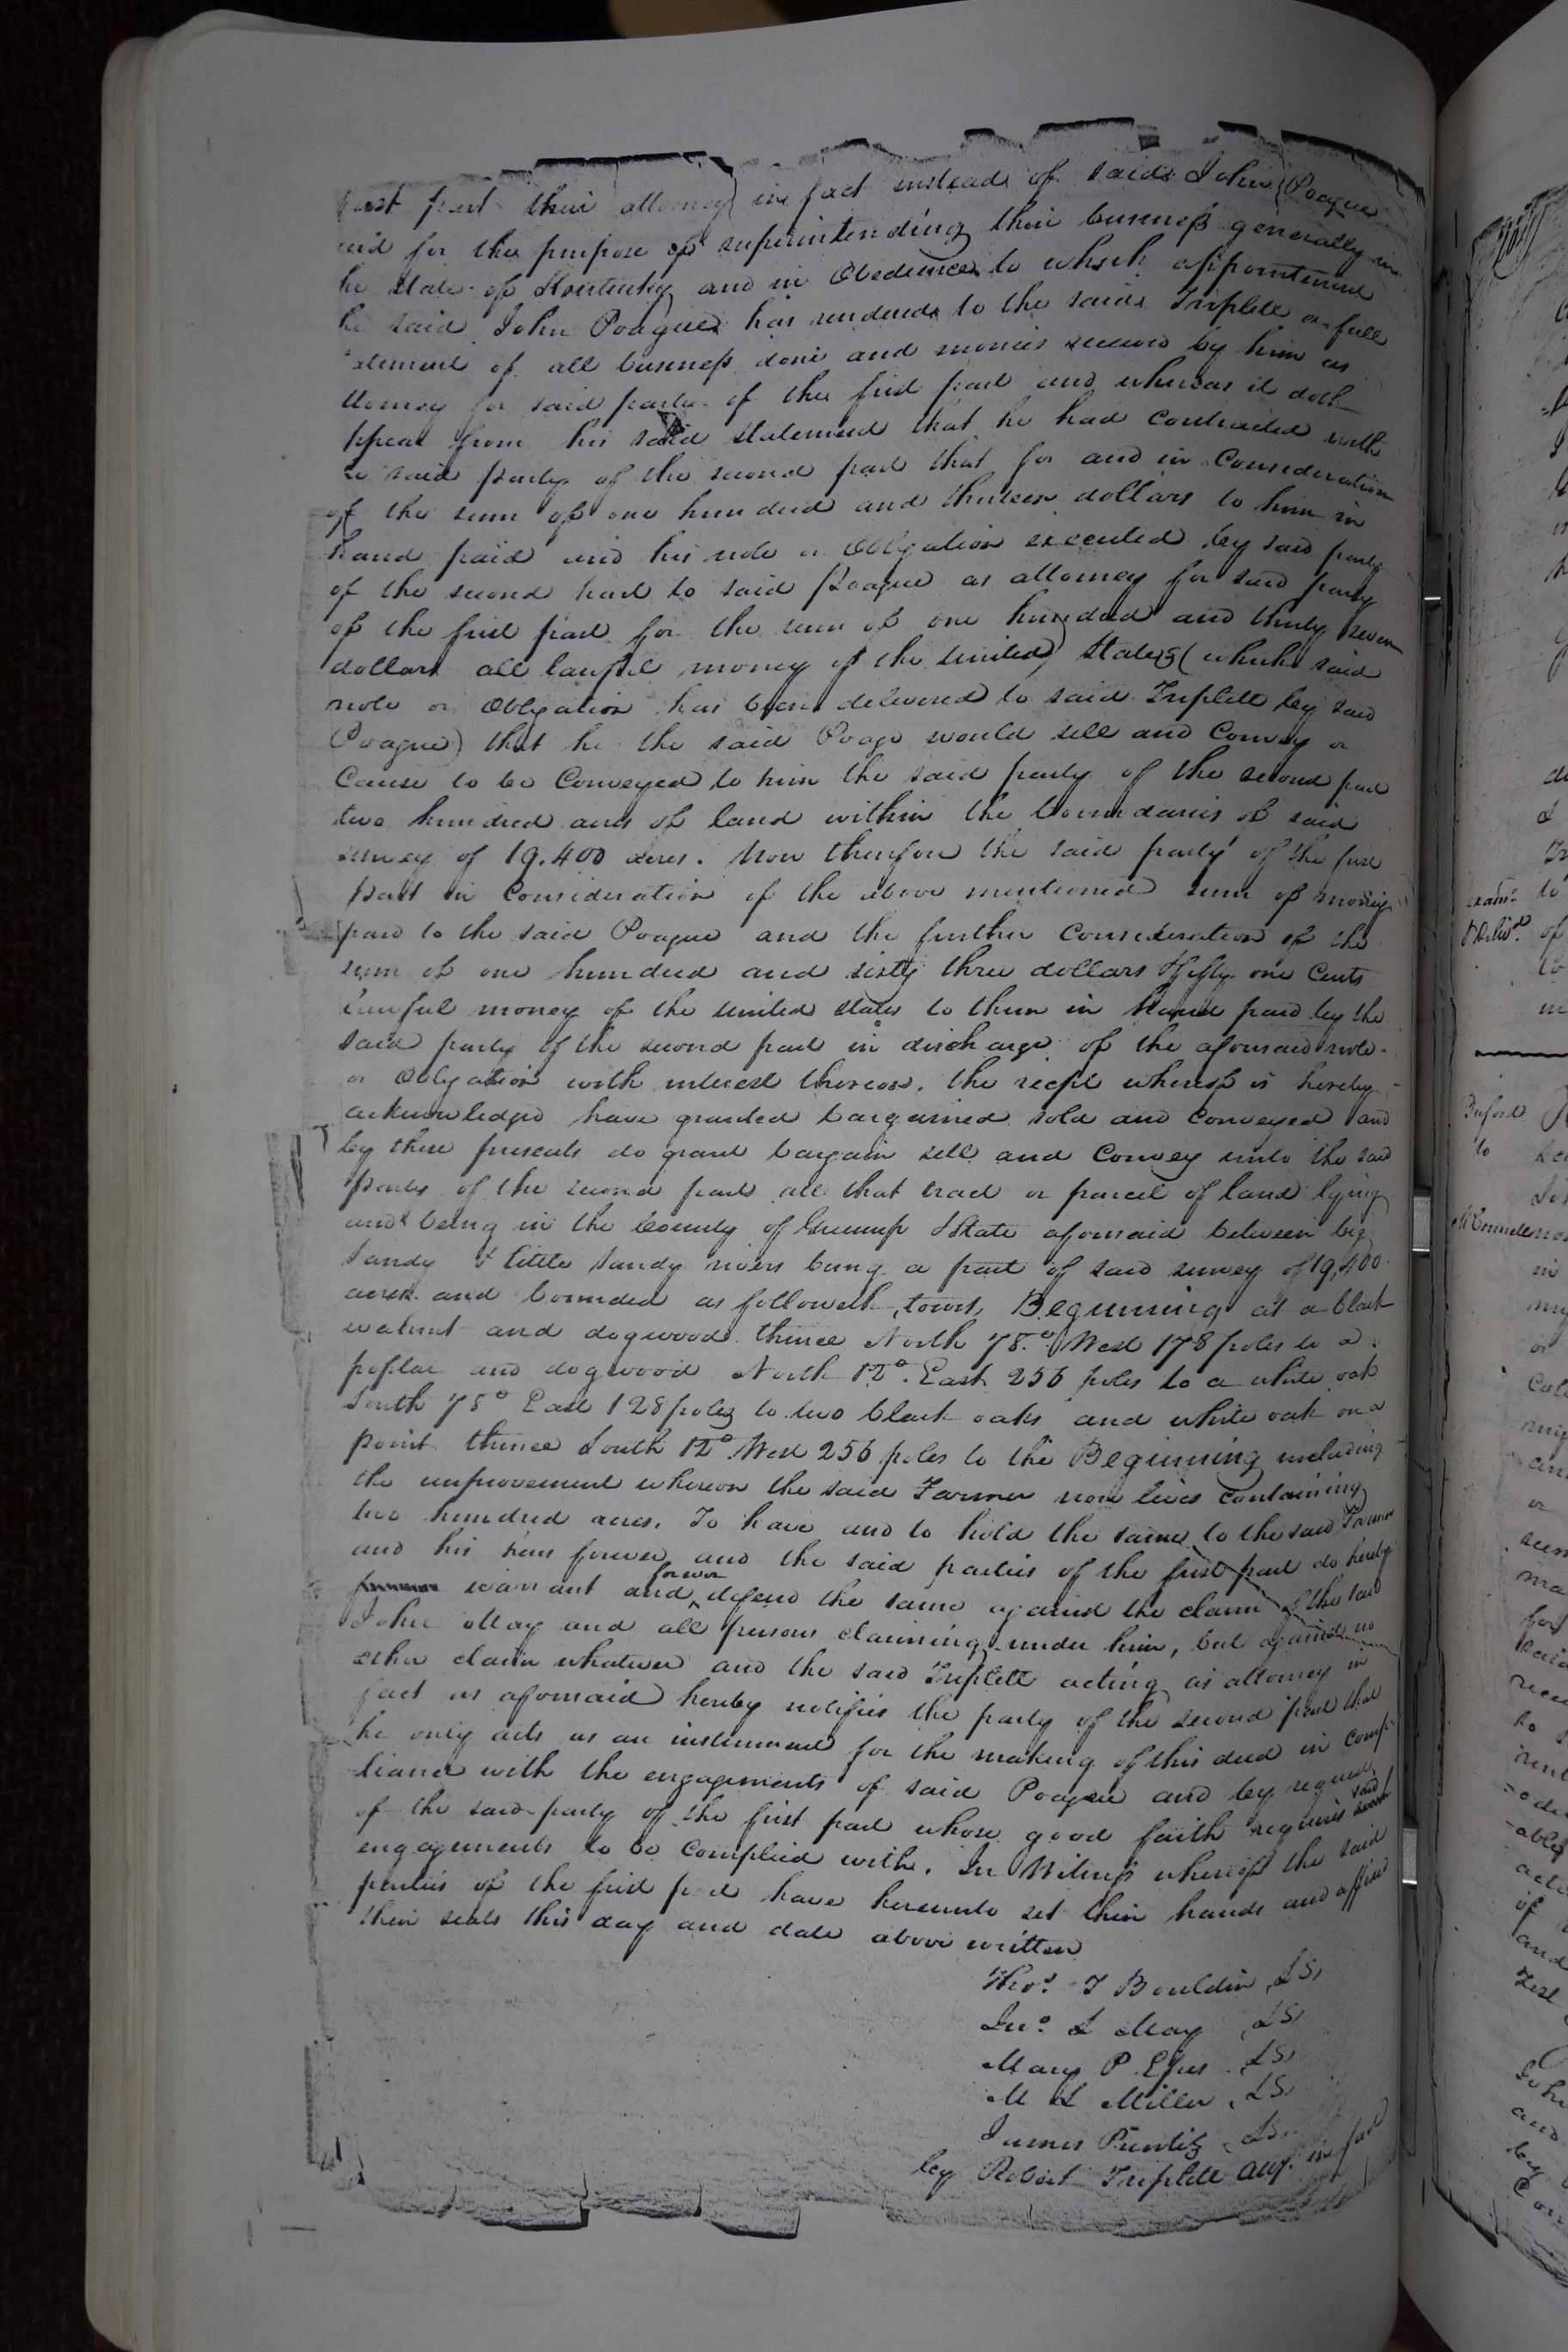 first part their attorney in fact instead of said John Poague
and for the purpose of superintending their business generally in
he State of Kentucky and in Obedience to which appointment
he said John Poague has rendered to the said Triplett a full
atement of all business done and monies received by him as
ttorney for said party of the first part and whereas it doth
ppear from his said statement that he had contracted with
he said party of the second part that for and in Consideration
of the sum of one hundred and thirteen dollars to him in
hand paid and his note or Obligation executed by said party
of the second part to said Poague as attorney for said party
of the first part for the sum of one hundred and thirty seven
dollars all lawful money of the United States (which said
note or Obligation has been delivered to said Triplett by said
Poague) that he the said Poage would sell and Convey or
Cause to be Conveyed to him the said party of the second part
two hundred acres of land within the boundaries of said
survey of 19,400 acres. Now therefore the said party of the first
part in Consideration of the above mentioned sum of money
paid to the said Poague and the further Consideration of the
sum of one hundred and sixty three dollars & fifty one Cents
lawful money of the United States to them in hand paid by the
said party of the second part in discharge of the aforesaid note
or Obligation with interest thereon, the recept whereof is hereby
acknowledged have granted bargained sold and conveyed and
by these presents do grant bargain sell and Convey unto the said
party of the second part all that tract or parcel of land lying
and being in the County of Greenup & State aforesaid between big
Sandy & little Sandy rivers being a part of said survey of 19,400
acres and bounded as followeth, towit, Beginning at a black
walnut and dogwood thence North 78° West 178 poles to a
poplar and dogwood North 12° East 256 poles to a white oak
South 78° East 128 poles to two black oaks and white oak on a
point thence South 12° West 256 poles to the Beginning including
the improvement whereon the said Farmer now lives Containing
two hundred acres. To have and to hold the same to the said Farmer
and his heirs forever and the said parties of the first part do hereby
warrant and forever defend the same against the claim of the said
John May and all persons claiming under him, but against no
other claim whatever and the said Triplett acting as attorney in
fact as aforesaid hereby notifies the party of the second part that
he only acts as an instrument for the making of this deed in comp-
liance with the engagements of said Poague and by request
of the said party of the first part whose good faith requires said
engagements to be Complied with. In Witness whereof the said
parties of the first part have hereunto set their hands and affixed
their seals this day and date above written
Thos. T Bouldin LS,
Jno. L May LS,
Mary P. Epes LS,
M L Miller LS,
James LS,
by Robert Triplett atty. in fact